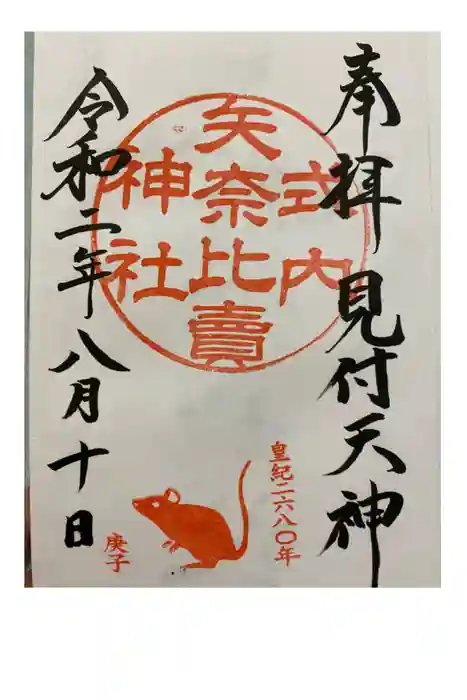 奉拝見付天神
式内
矢奈比賣
神社
皇紀二六八〇年
庚子
令和二年八月十日